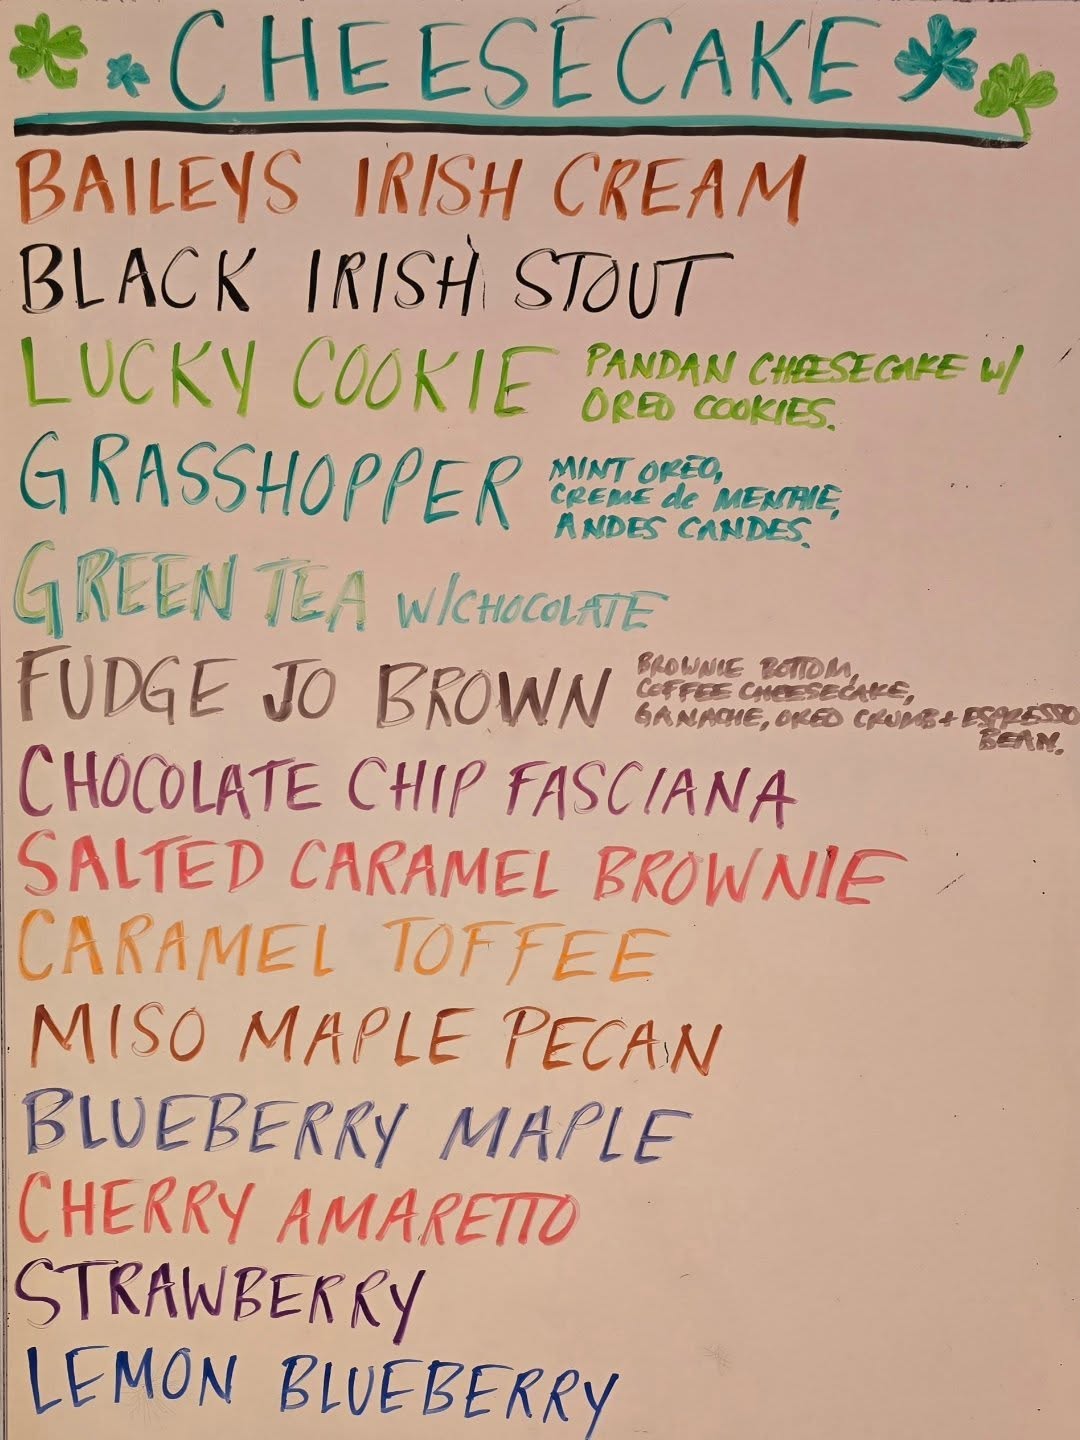 CHEESECAKE
BAILEYS IRISH CREAM
BLACK IRISH STOUT
LUCKY COOKIE
PANDAN CHEESECAKE W/
OREO COOKIES.
GRASSHOPPER
MINT OREO,
CREME de MENTHE,
ANDES CANDES.
GREEN TEA W/CHOCOLATE
FUDGE JO BROWN
BROWNIE BOTTOM,
COFFEE CHEESECAKE,
GANACHE, OREO CRUMB + ESPRESSO
BEAN.
CHOCOLATE CHIP FASCIANA
SALTED CARAMEL BROWNIE
CARAMEL TOFFEE
MISO MAPLE PECAN
BLUEBERRY MAPLE
CHERRY AMARETTO
STRAWBERRY
LEMON BLUEBERRY